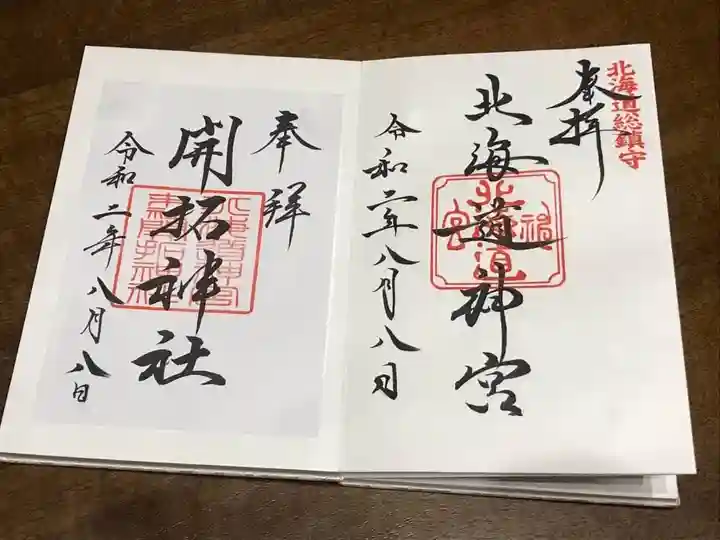 北海道総鎮守
奉拝
北海道神宮
北海道
神
宮
令和二年八月八日
奉拝
開拓神社
令和二年八月八日